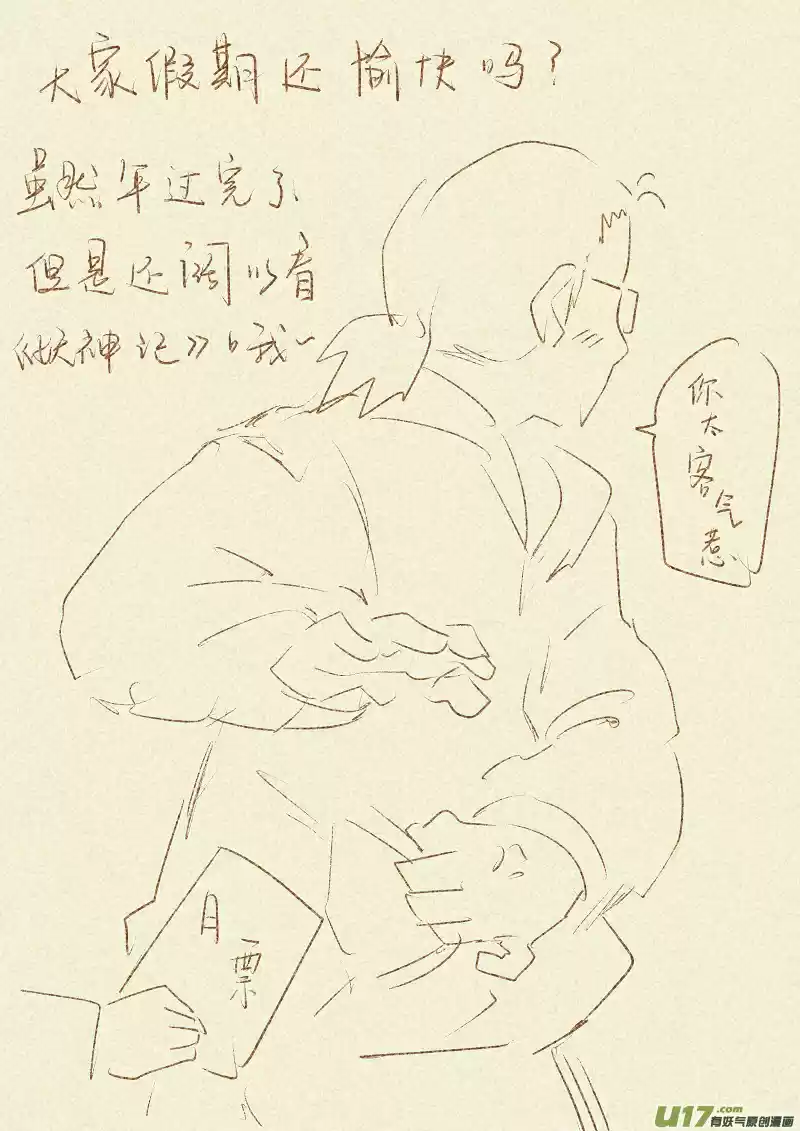 大家假期还愉快吗？
虽然年过完了
但是还阔以看
《妖神记》哦~
你太客气惹
月票
U17.com
有妖气原创漫画